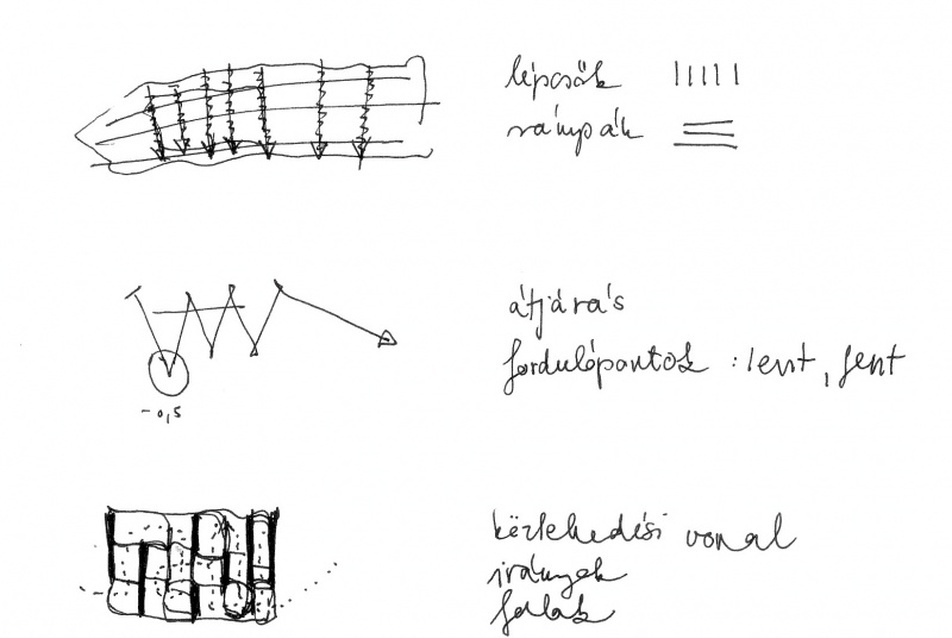 lépcsők
rámpák
átjárás
fordulópontok : lent, fent
-0,5
közlekedési vonal
irányok
falak